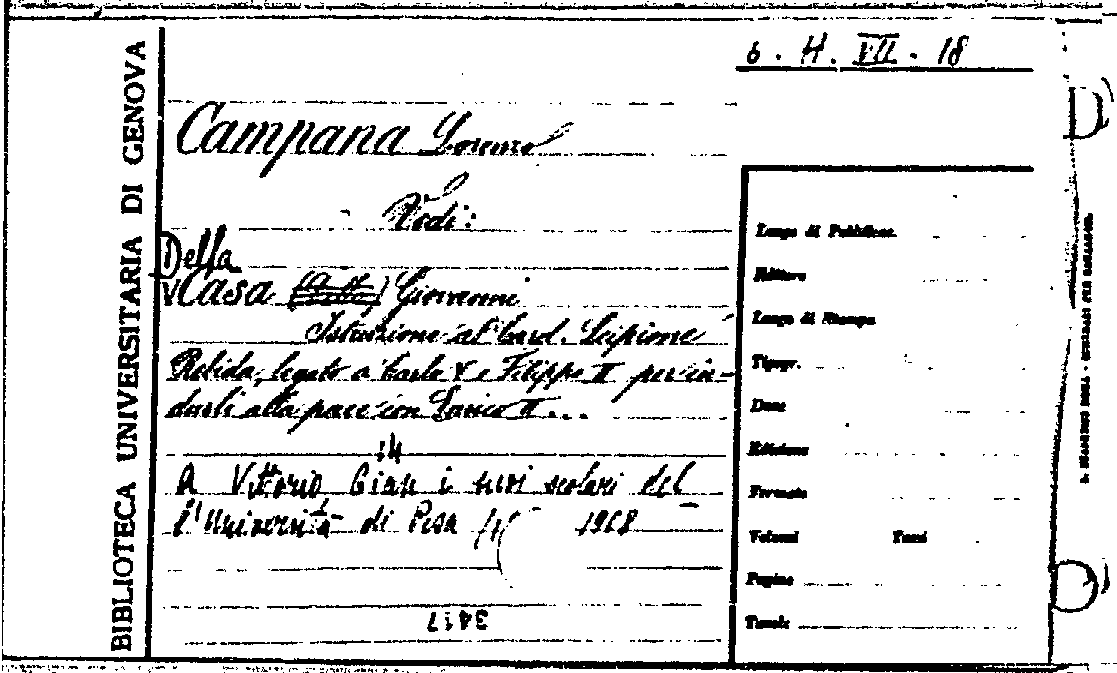 6. H. VII. 18
BIBLIOTECA UNIVERSITARIA DI GENOVA
Campana Lorenzo
Vedi:
Della
Casa Giovanni
Istruzione al Card. Scipione
Rebida, legato a Carlo V e Filippo II per in-
durli alla pace con Enrico II...
In
A Vittorio Cian i suoi scolari del
l'Università di Pisa 1908
3417
Luogo di Pubblicaz.
Editore
Luogo di Stampa
Tipogr.
Data
Edizione
Formato
Volumi Tomi
Pagine
Tavole